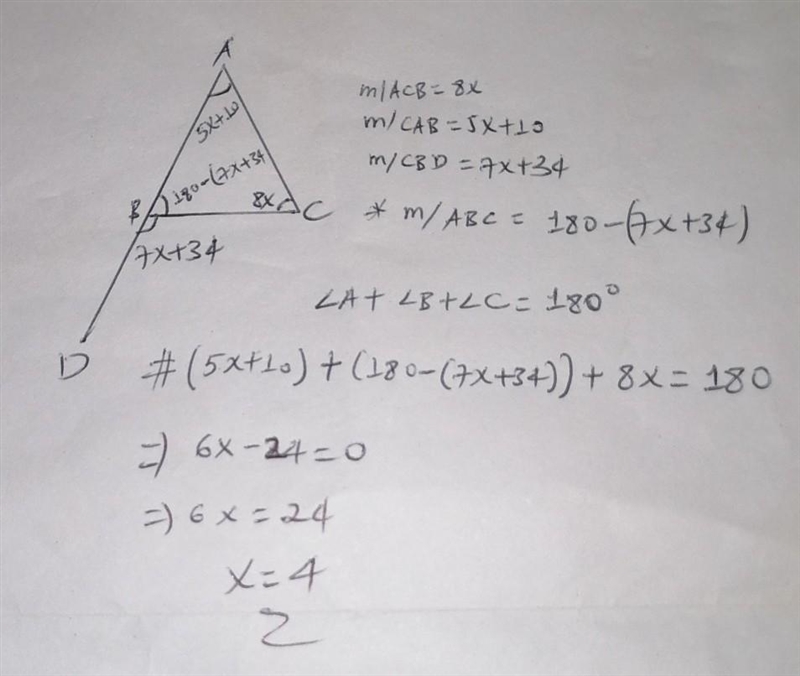 A
5x+10
180-(7x+34
8x
B
C
7x+34
D
m/ACB = 8x
m/CAB = 5x+10
m/CBD = 7x+34
* m/ABC = 180-(7x+34)
∠A+ ∠B+∠C= 180°
# (5x+10) + (180-(7x+34)) + 8x = 180
=) 6x-24=0
=) 6x = 24
x=4